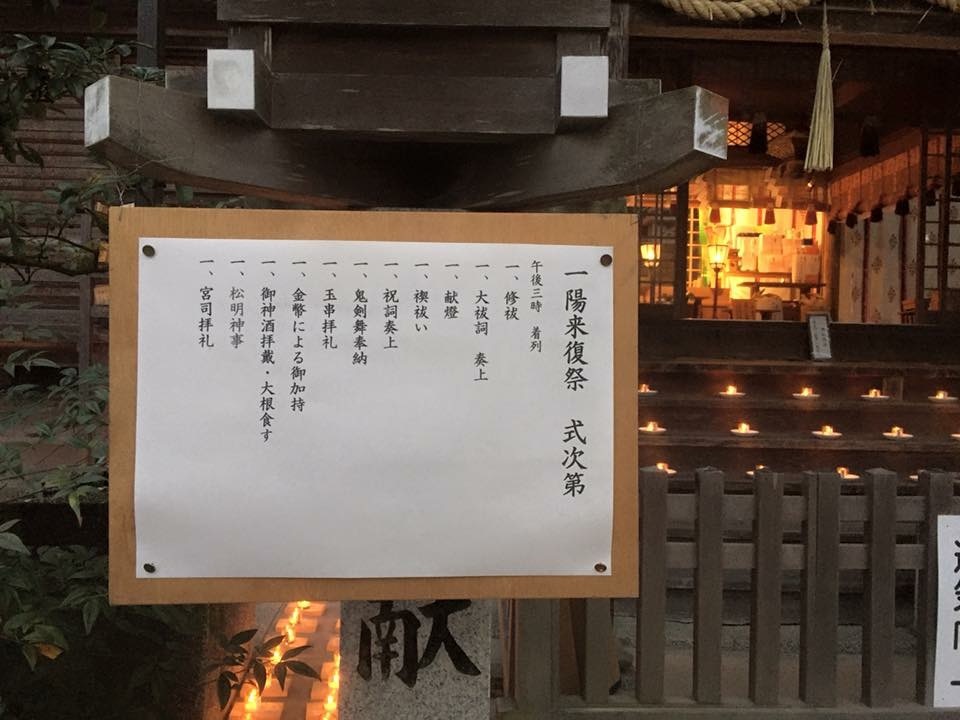 一陽来復祭　式次第
午後三時　着列
一、修祓
一、大祓詞　奏上
一、献燈
一、禊祓い
一、祝詞奏上
一、鬼剣舞奉納
一、玉串拝礼
一、金幣による御加持
一、御神酒拝戴・大根食す
一、松明神事
一、宮司拝礼
献